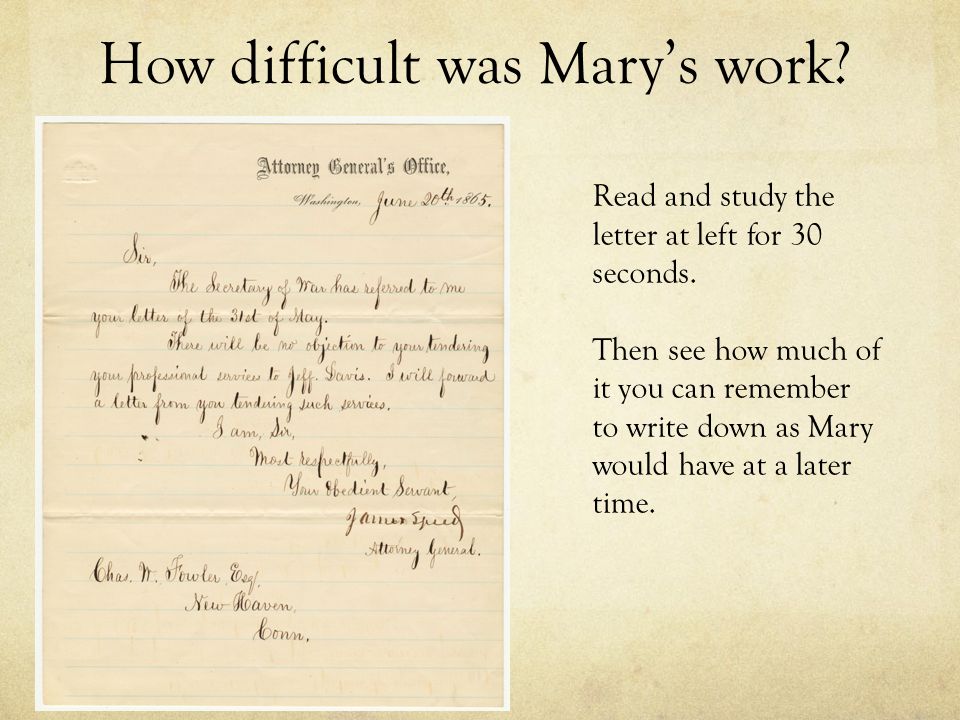 How difficult was Mary's work?
Attorney General's Office,
Washington, June 20th 1865.
Sir,
The Secretary of War has referred to me
your letter of the 31st of May.
There will be no objection to your tendering
your professional services to Jeff. Davis. I will forward
a letter from you tendering such services.
I am, Sir,
Most respectfully,
Your Obedient Servant,
James Speed
Attorney General.
Chas. W. Fowler, Esq.
New Haven,
Conn.
Read and study the
letter at left for 30
seconds.
Then see how much of
it you can remember
to write down as Mary
would have at a later
time.